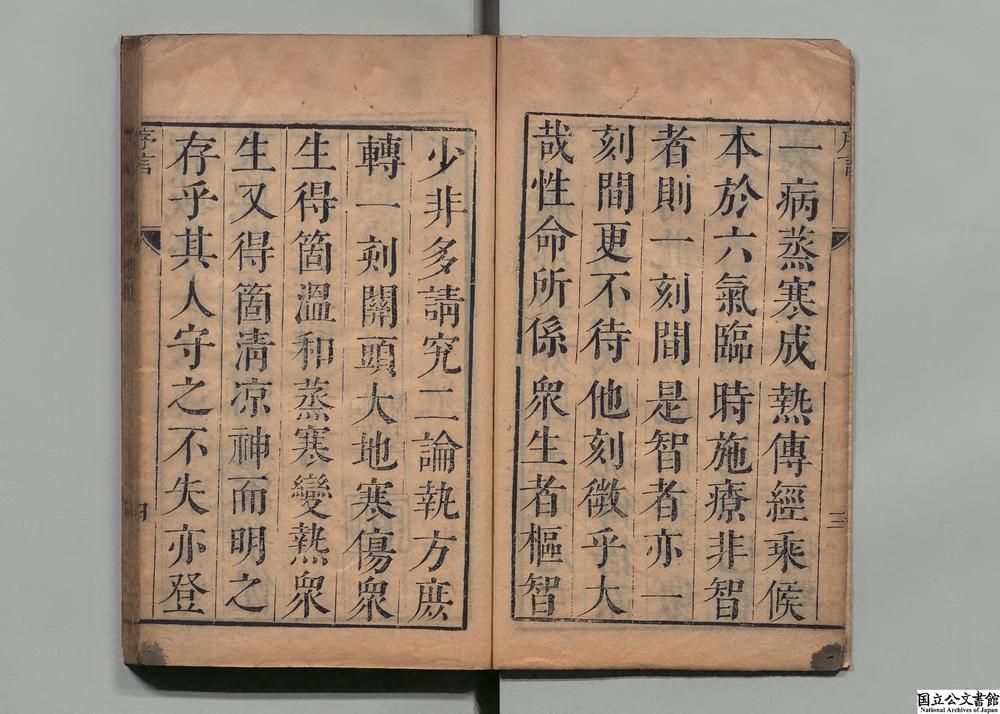 序言
一病蒸寒成熱傳經乘候
本於六氣臨時施療非智
者則一刻間是智者亦一
刻間更不待他刻微乎大
哉性命所係衆生者樞智
三
少非多請究二論執方庶
轉一剎關頭大地寒傷衆
生得箇溫和蒸寒變熱衆
生又得箇清凉神而明之
存乎其人守之不失亦登
序言
四
国立公文書館
National Archives of Japan